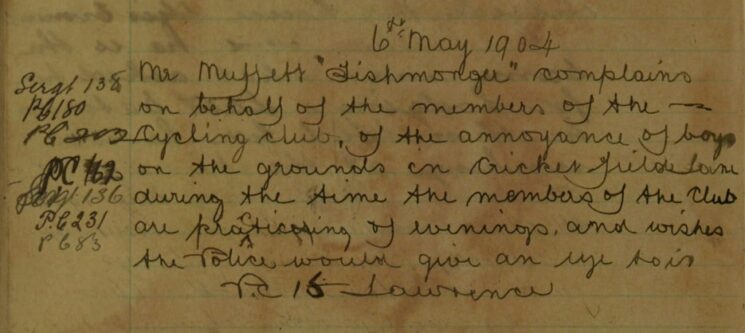 6th May 1904
Sergt 138
Mr Muffett "Fishmonger" complains
PC 180
on behalf of the members of the —
PC 202
Cycling club, of the annoyance of boys
PC 162
on the grounds in Cricket field Lane
Sergt 136
during the time the members of the Club
P.C 231
are practicing of evenings, and wishes
PC 83
the Police would give an eye to it
P.C 15 Lawrence